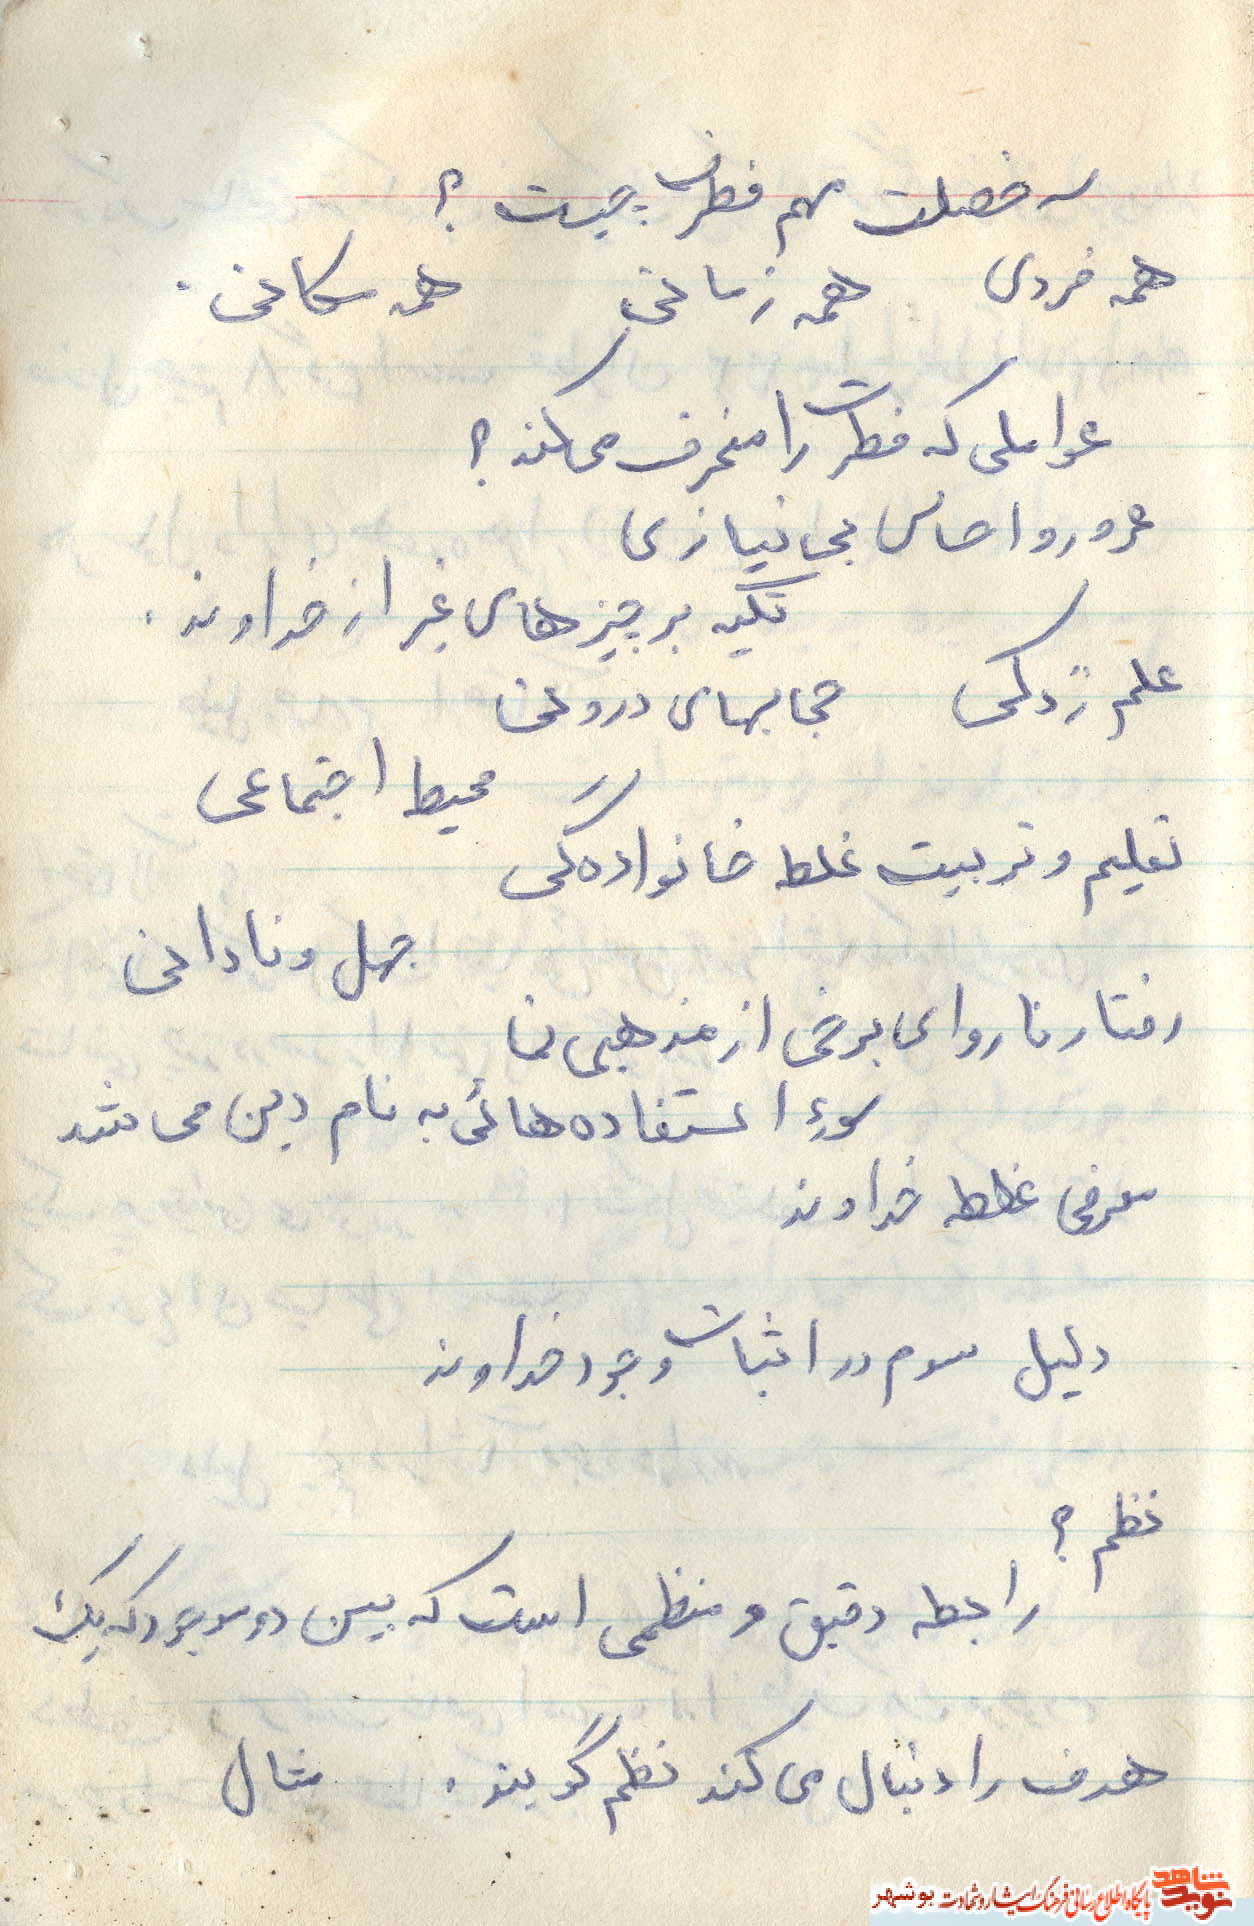 سه خصلت مهم فطرت چیست ؟
همه فردی همه زمانی همه مکانی .
عواملی که فطرت را منحرف می کند ؟
غرور و احساس بی نیازی
تکیه بر چیزهای غیر از خداوند .
علم زدگی حجابهای دروغی
محیط اجتماعی
تعلیم و تربیت غلط خانوادگی
جهل و نادانی
رفتار ناروای برخی از مذهبی نما
سوء استفاده هائی به نام دین می شد
معرفی غلط خداوند
دلیل سوم در اثبات وجود خداوند
نظم ؟
رابطه دقیق و منظمی است که بین دو موجود که یک
هدف را دنبال می کند نظم گویند . مثال
نوید شاهد پایگاه اطلاع رسانی فرهنگ ایثار و شهادت بوشهر